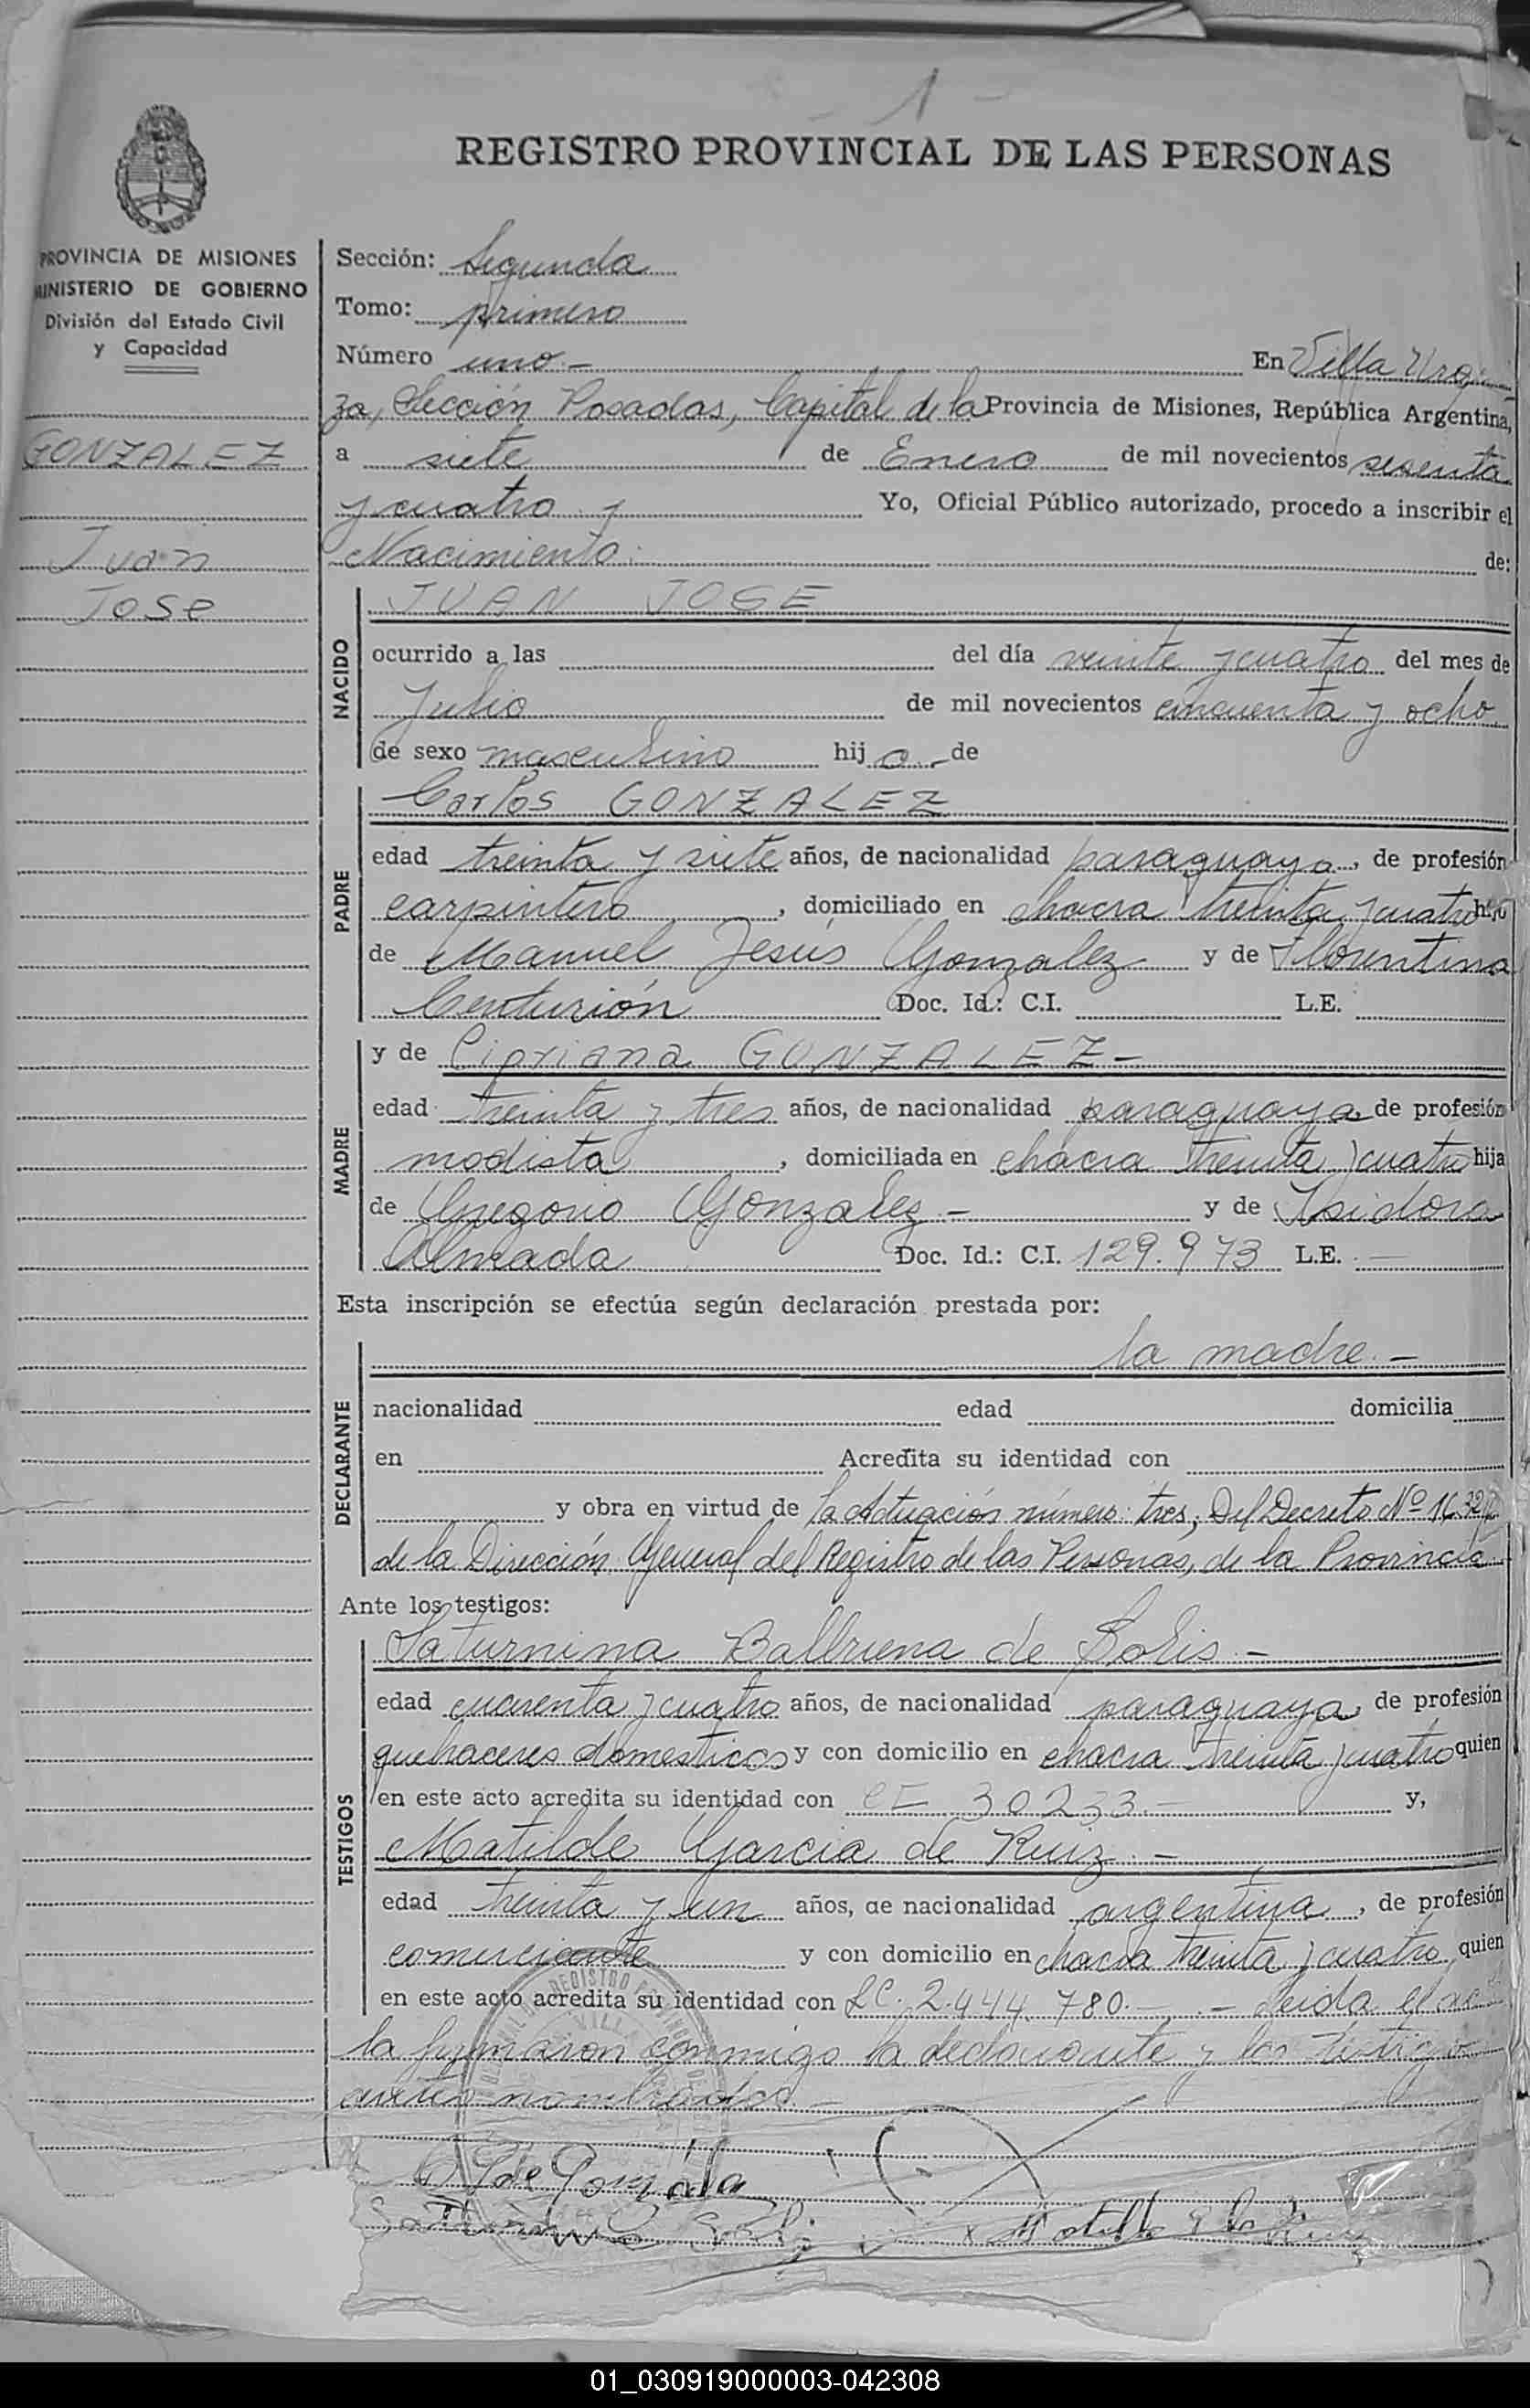 1
REGISTRO PROVINCIAL DE LAS PERSONAS
PROVINCIA DE MISIONES
MINISTERIO DE GOBIERNO
División del Estado Civil
y Capacidad
GONZALEZ
Juan
Jose
Sección: Segunda
Tomo: primero
Número uno.- En Villa Urqui
za, Sección Posadas, Capital de la Provincia de Misiones, República Argentina,
a siete de Enero de mil novecientos sesenta
y cuatro y Yo, Oficial Público autorizado, procedo a inscribir el
Nacimiento. de:
NACIDO
JUAN JOSE
ocurrido a las del día veinte y cuatro del mes de
Julio de mil novecientos cincuenta y ocho
de sexo masculino hijo.- de
PADRE
Carlos GONZALEZ
edad treinta y siete años, de nacionalidad paraguaya, de profesión
carpintero, domiciliado en chacra treinta y cuatro hijo
de Manuel Jesús Gonzalez y de Florentina
Centurión Doc. Id.: C.I. L.E.
MADRE
y de Cipriana GONZALEZ-
edad treinta y tres años, de nacionalidad paraguaya, de profesión
modista, domiciliada en chacra treinta y cuatro hija
de Gregorio Gonzalez.- y de Isidora
Almada Doc. Id.: C.I. 129.973 L.E. —
Esta inscripción se efectúa según declaración prestada por:
DECLARANTE
la madre.-
nacionalidad edad domicilia
en Acredita su identidad con
y obra en virtud de la Actuación número: tres, Del Decreto Nº 1632
de la Dirección General del Registro de las Personas, de la Provincia
Ante los testigos:
TESTIGOS
Saturnina Balbuena de Solis.-
edad cuarenta y cuatro años, de nacionalidad paraguaya, de profesión
quehaceres domesticos y con domicilio en chacra treinta y cuatro quien
en este acto acredita su identidad con CI 30233.- y,
Matilde Garcia de Ruiz.-
edad treinta y un años, de nacionalidad argentina, de profesión
comerciante y con domicilio en chacra treinta y cuatro, quien
en este acto acredita su identidad con LC. 2.444.780.- .- Leida el ac
ta firmaron conmigo la declarante y los testigos
antes nombrados.-
de Gonzalez
01_030919000003-042308